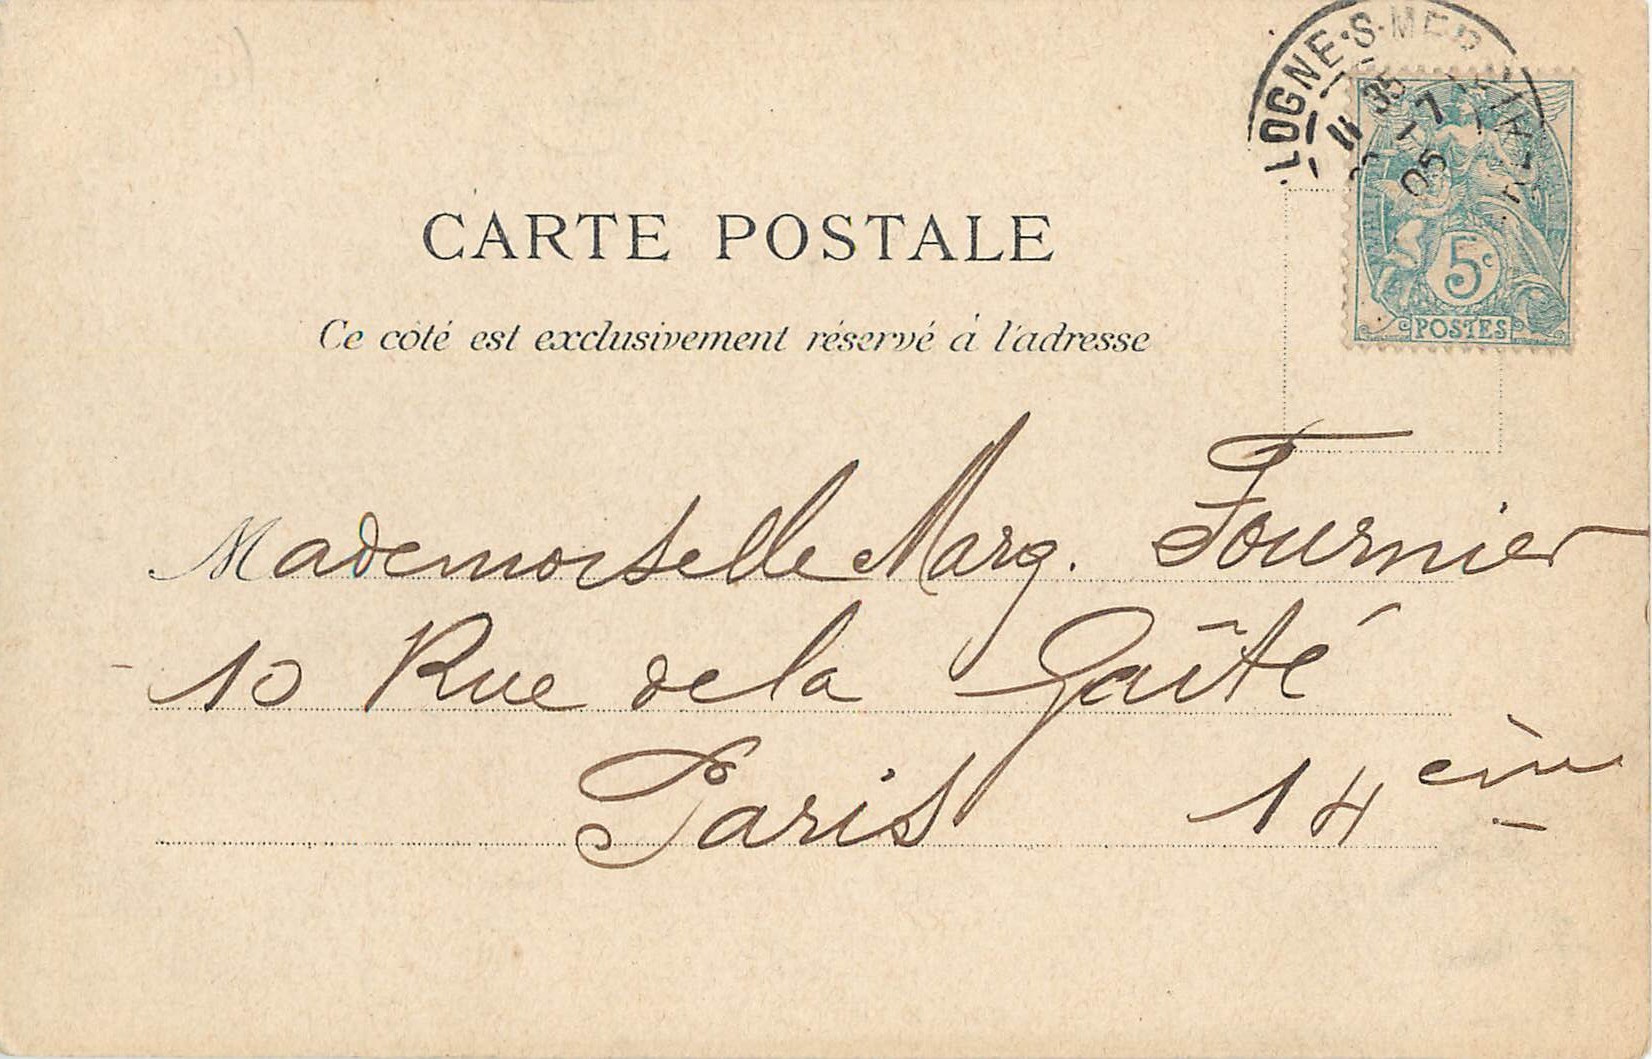 LOGNE-S-MER
11 35
-7
05
5c
POSTES
CARTE POSTALE
Ce côté est exclusivement réservé à l'adresse
Mademoiselle Marg. Fournier
10 Rue de la Gaîté
Paris 14ème